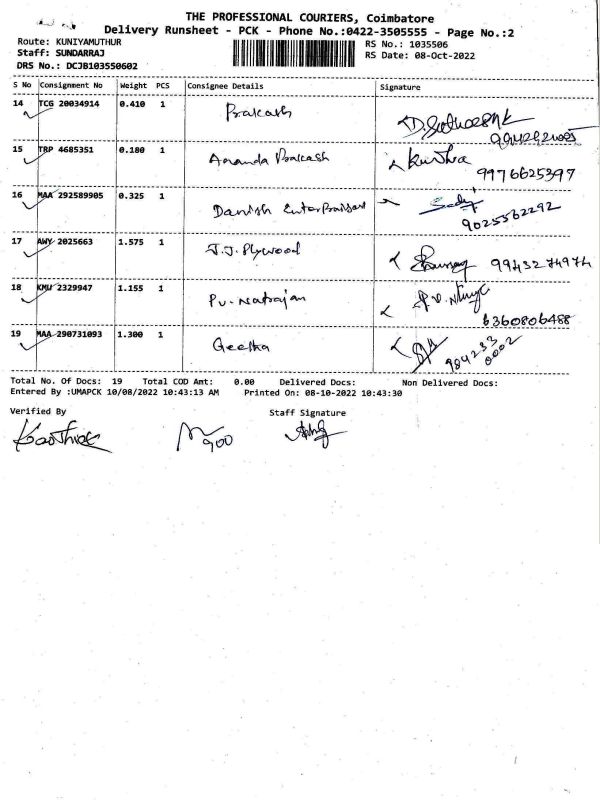 THE PROFESSIONAL COURIERS, Coimbatore
Delivery Runsheet - PCK - Phone No.:0422-3505555 - Page No.:2
Route: KUNIYAMUTHUR
RS No.: 1035506
Staff: SUNDARRAJ
RS Date: 08-Oct-2022
DRS No.: DCJB103550602
S No Consignment No Weight PCS Consignee Details Signature
14 TCG 20034914 0.410 1 Prakash
15 TRP 4685351 0.180 1 Ananda Prakash Kavitha
9976625397
16 MAA 292589905 0.325 1 Danish Enterprises
9025562292
17 AWY 2025663 1.575 1 J.J. Plywood
9943274974
18 KMU 2329947 1.155 1 Pv. Natrajan
6360806488
19 MAA 290731093 1.300 1 Geetha
984233
0002
Total No. Of Docs: 19 Total COD Amt: 0.00 Delivered Docs: Non Delivered Docs:
Entered By :UMAPCK 10/08/2022 10:43:13 AM Printed On: 08-10-2022 10:43:30
Verified By Staff Signature
900